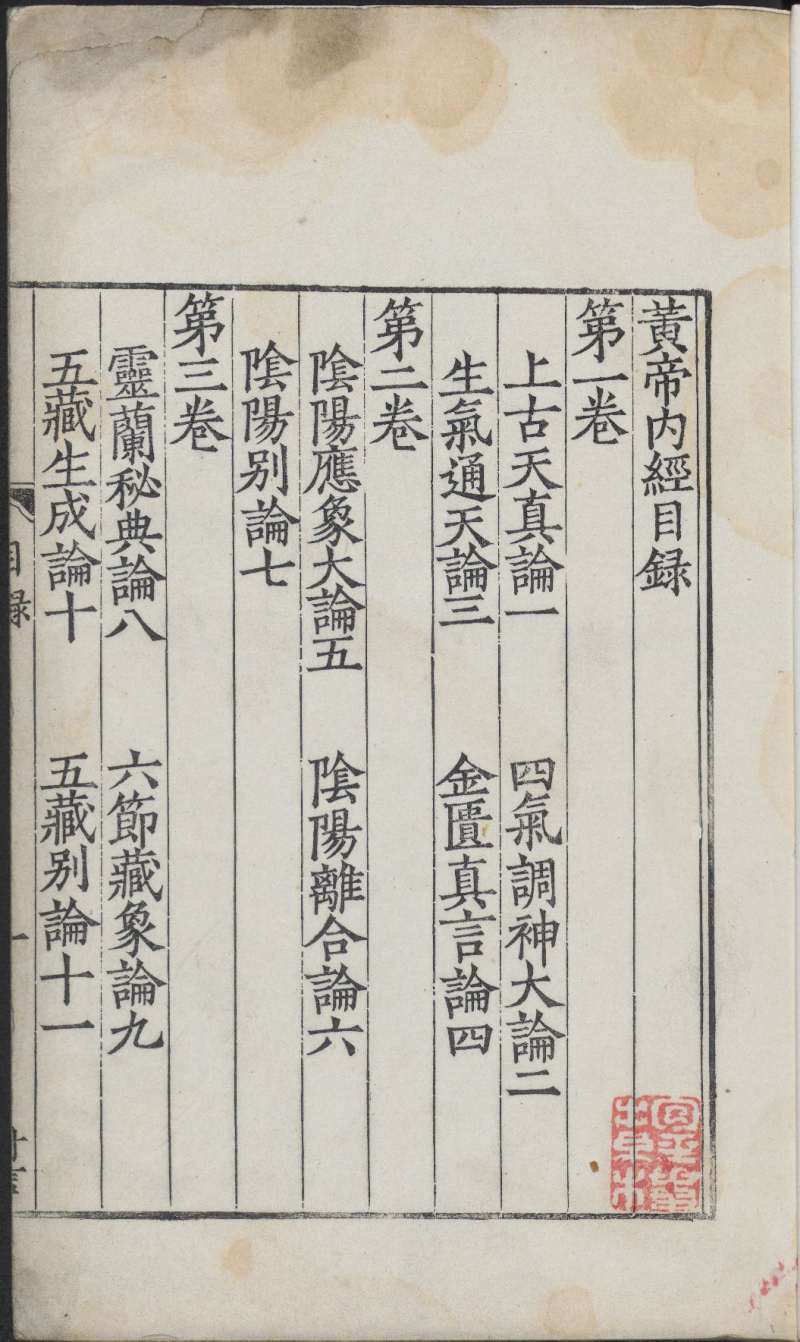 黃帝内經目録
第一卷
上古天真論一　四氣調神大論二
生氣通天論三　金匱真言論四
第二卷
陰陽應象大論五　陰陽離合論六
陰陽别論七
第三卷
靈蘭秘典論八　六節藏象論九
五藏生成論十　五藏别論十一
目録
一